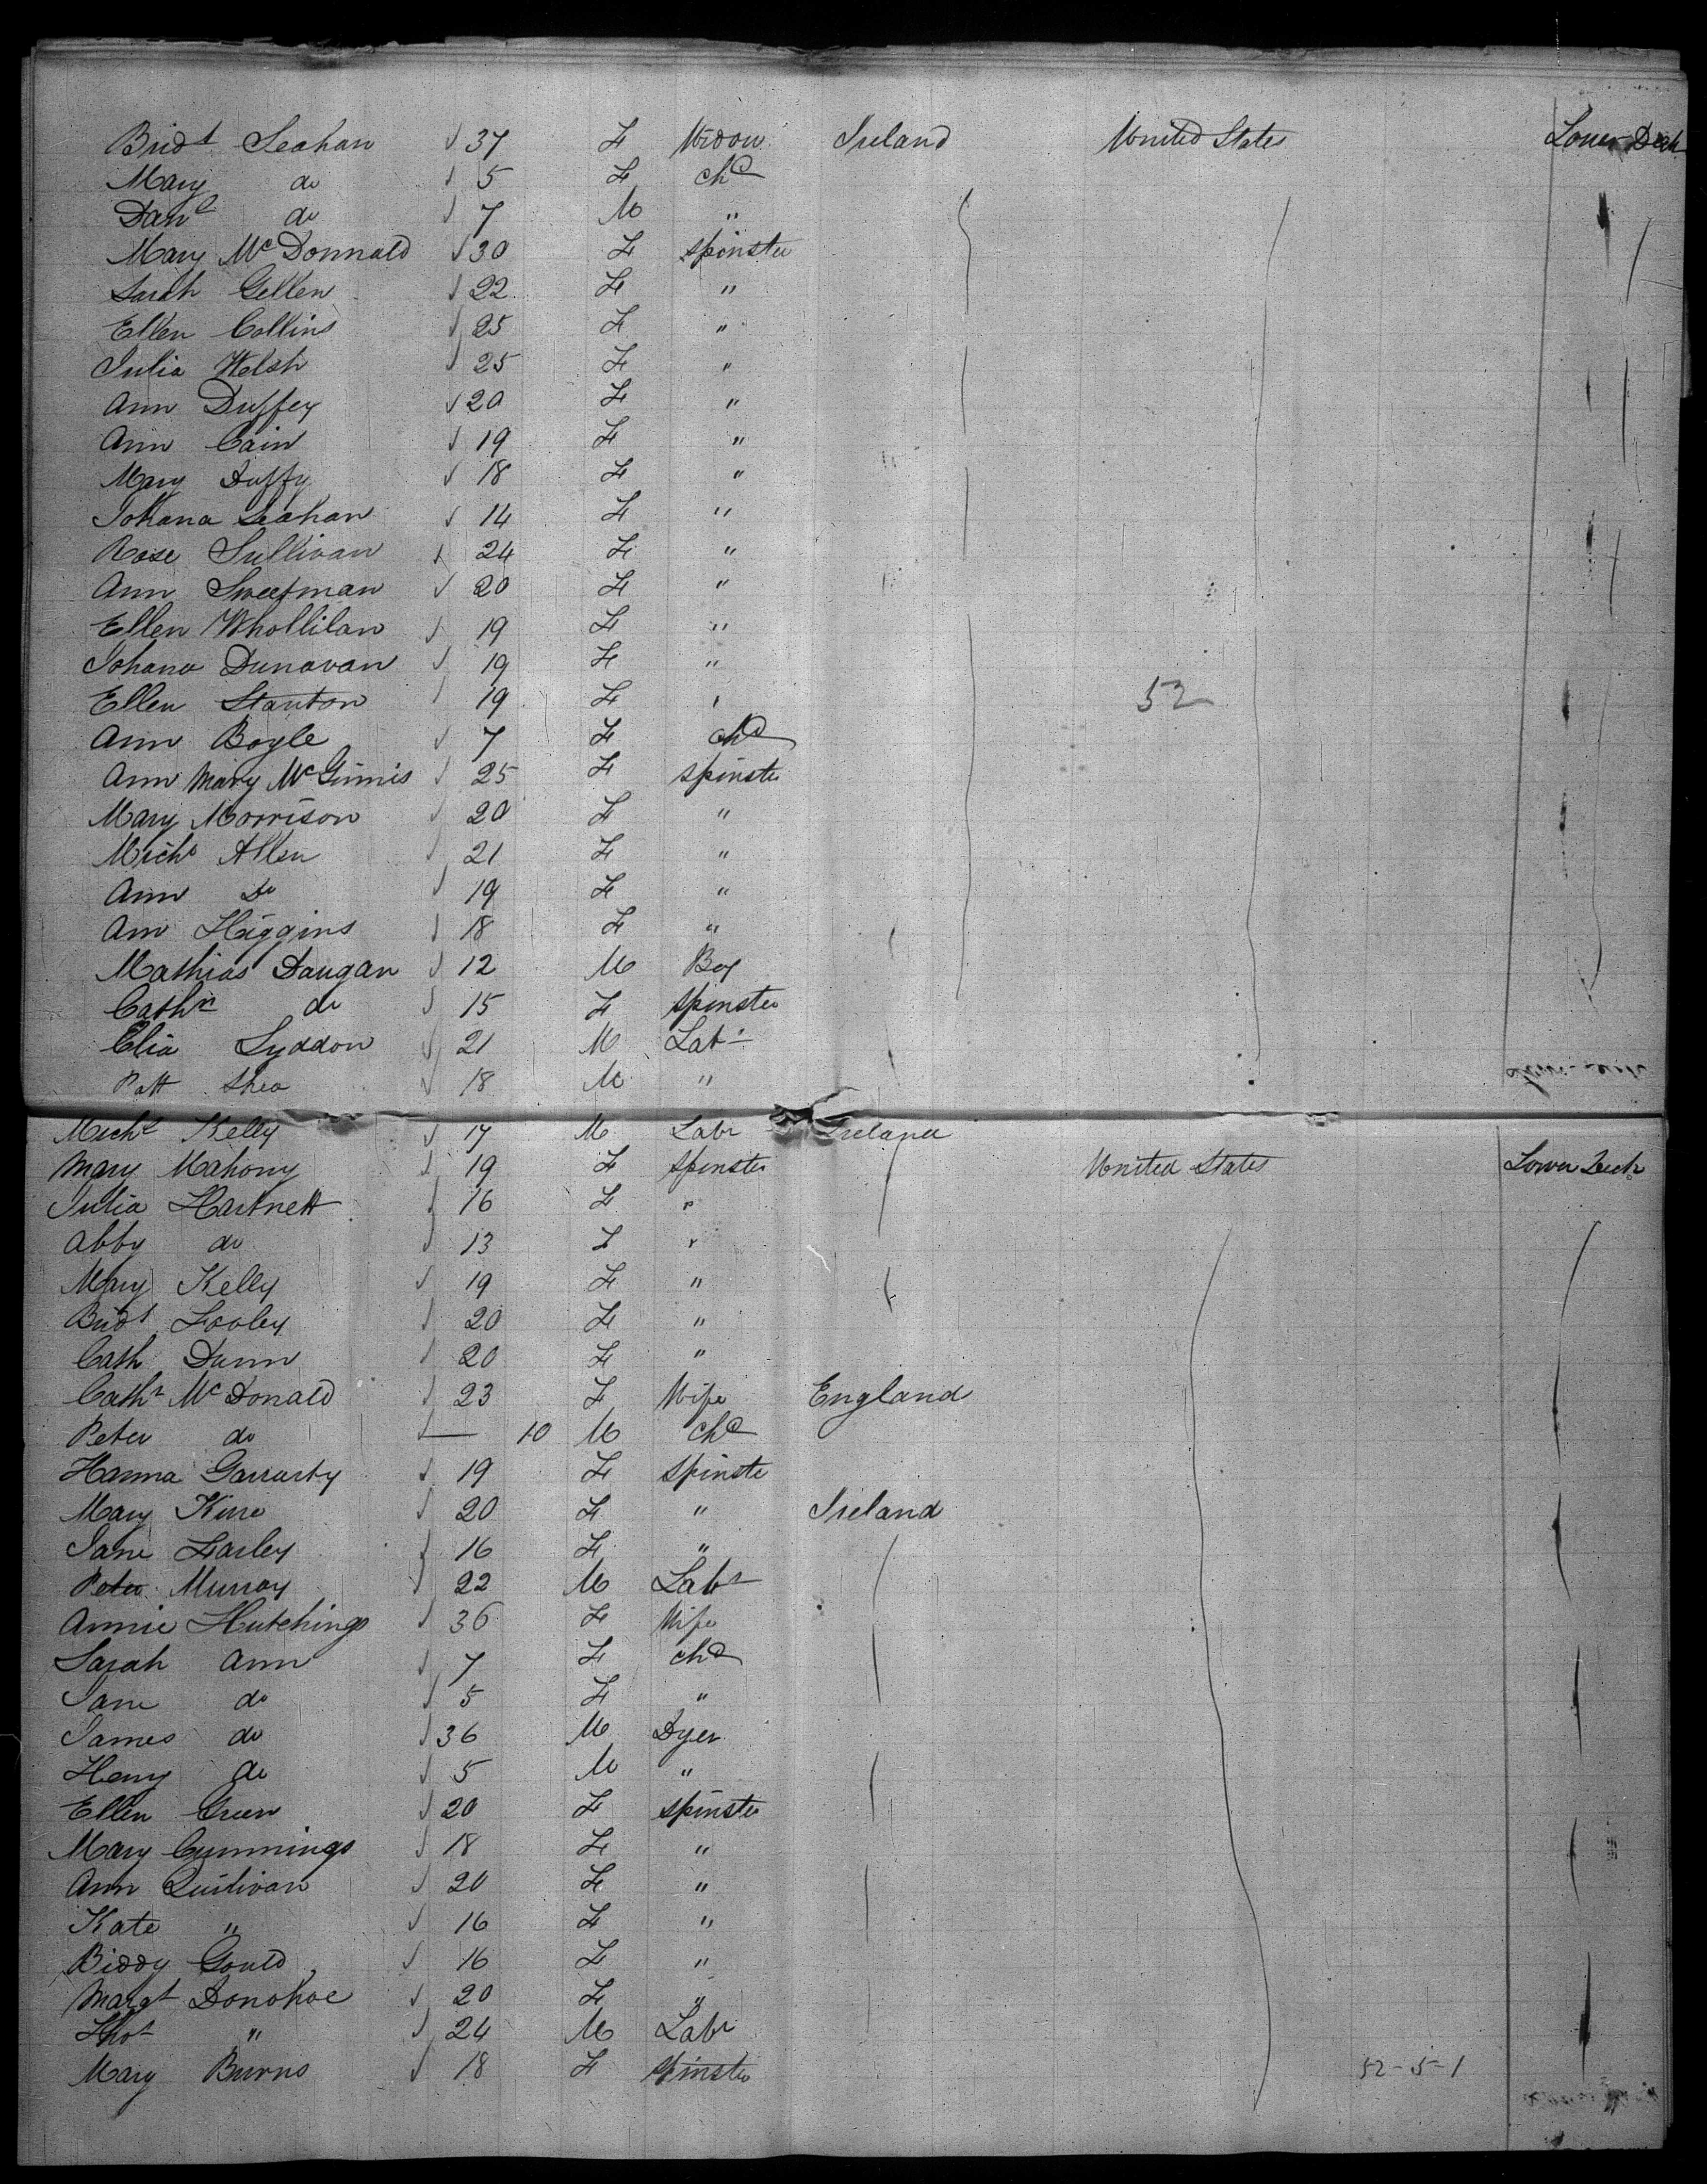 Bridt Leahan 37 F Widow Ireland United States Lower Deck
Mary do 5 F chd
Danl do 7 M "
Mary McDonnald 30 F spinster
Sarah Gellen 22 F "
Ellen Collins 25 F "
Julia Welsh 25 F "
Ann Duffey 20 F "
Ann Cain 19 F "
Mary Duffy 18 F "
Johana Leahan 14 F "
Rose Sullivan 24 F "
Ann Sweetman 20 F "
Ellen Whollilan 19 F "
Johana Dunavan 19 F "
Ellen Stanton 19 F "
52
Ann Boyle 7 F chd
Ann Mary McGinnis 25 F spinster
Mary Morrison 20 F "
Michl Allen 21 F "
Ann Do 19 F "
Ann Higgins 18 F "
Mathias Daugan 12 M Boy
Cathn do 15 F spinster
Elia Lyddon 21 M Labr
Patt Shea 18 M "
Michl Kelly 17 M Labr Ireland
Mary Mahony 19 F spinster United States Lower Deck
Julia Hartnett 16 F "
Abby do 13 F "
Mary Kelly 19 F "
Bridt Fooley 20 F "
Cath Dunn 20 F "
Cathn McDonald 23 F Wife England
Peter do — 10 M chd
Hanna Garrarty 19 F spinster
Mary King 20 F " Ireland
Jane Farley 16 F "
Peter Murray 22 M Labr
Annie Hutchings 36 F Wife
Sarah Ann 7 F chd
Jane do 5 F "
James do 36 M Dyer
Henry do 5 M "
Ellen Green 20 F spinster
Mary Cummings 18 F "
Ann Quilivan 20 F "
Kate " 16 F "
Biddy Gould 16 F "
Margt Donohoe 20 F "
Thos " 24 M Labr
Mary Burns 18 F spinster 52-5-1